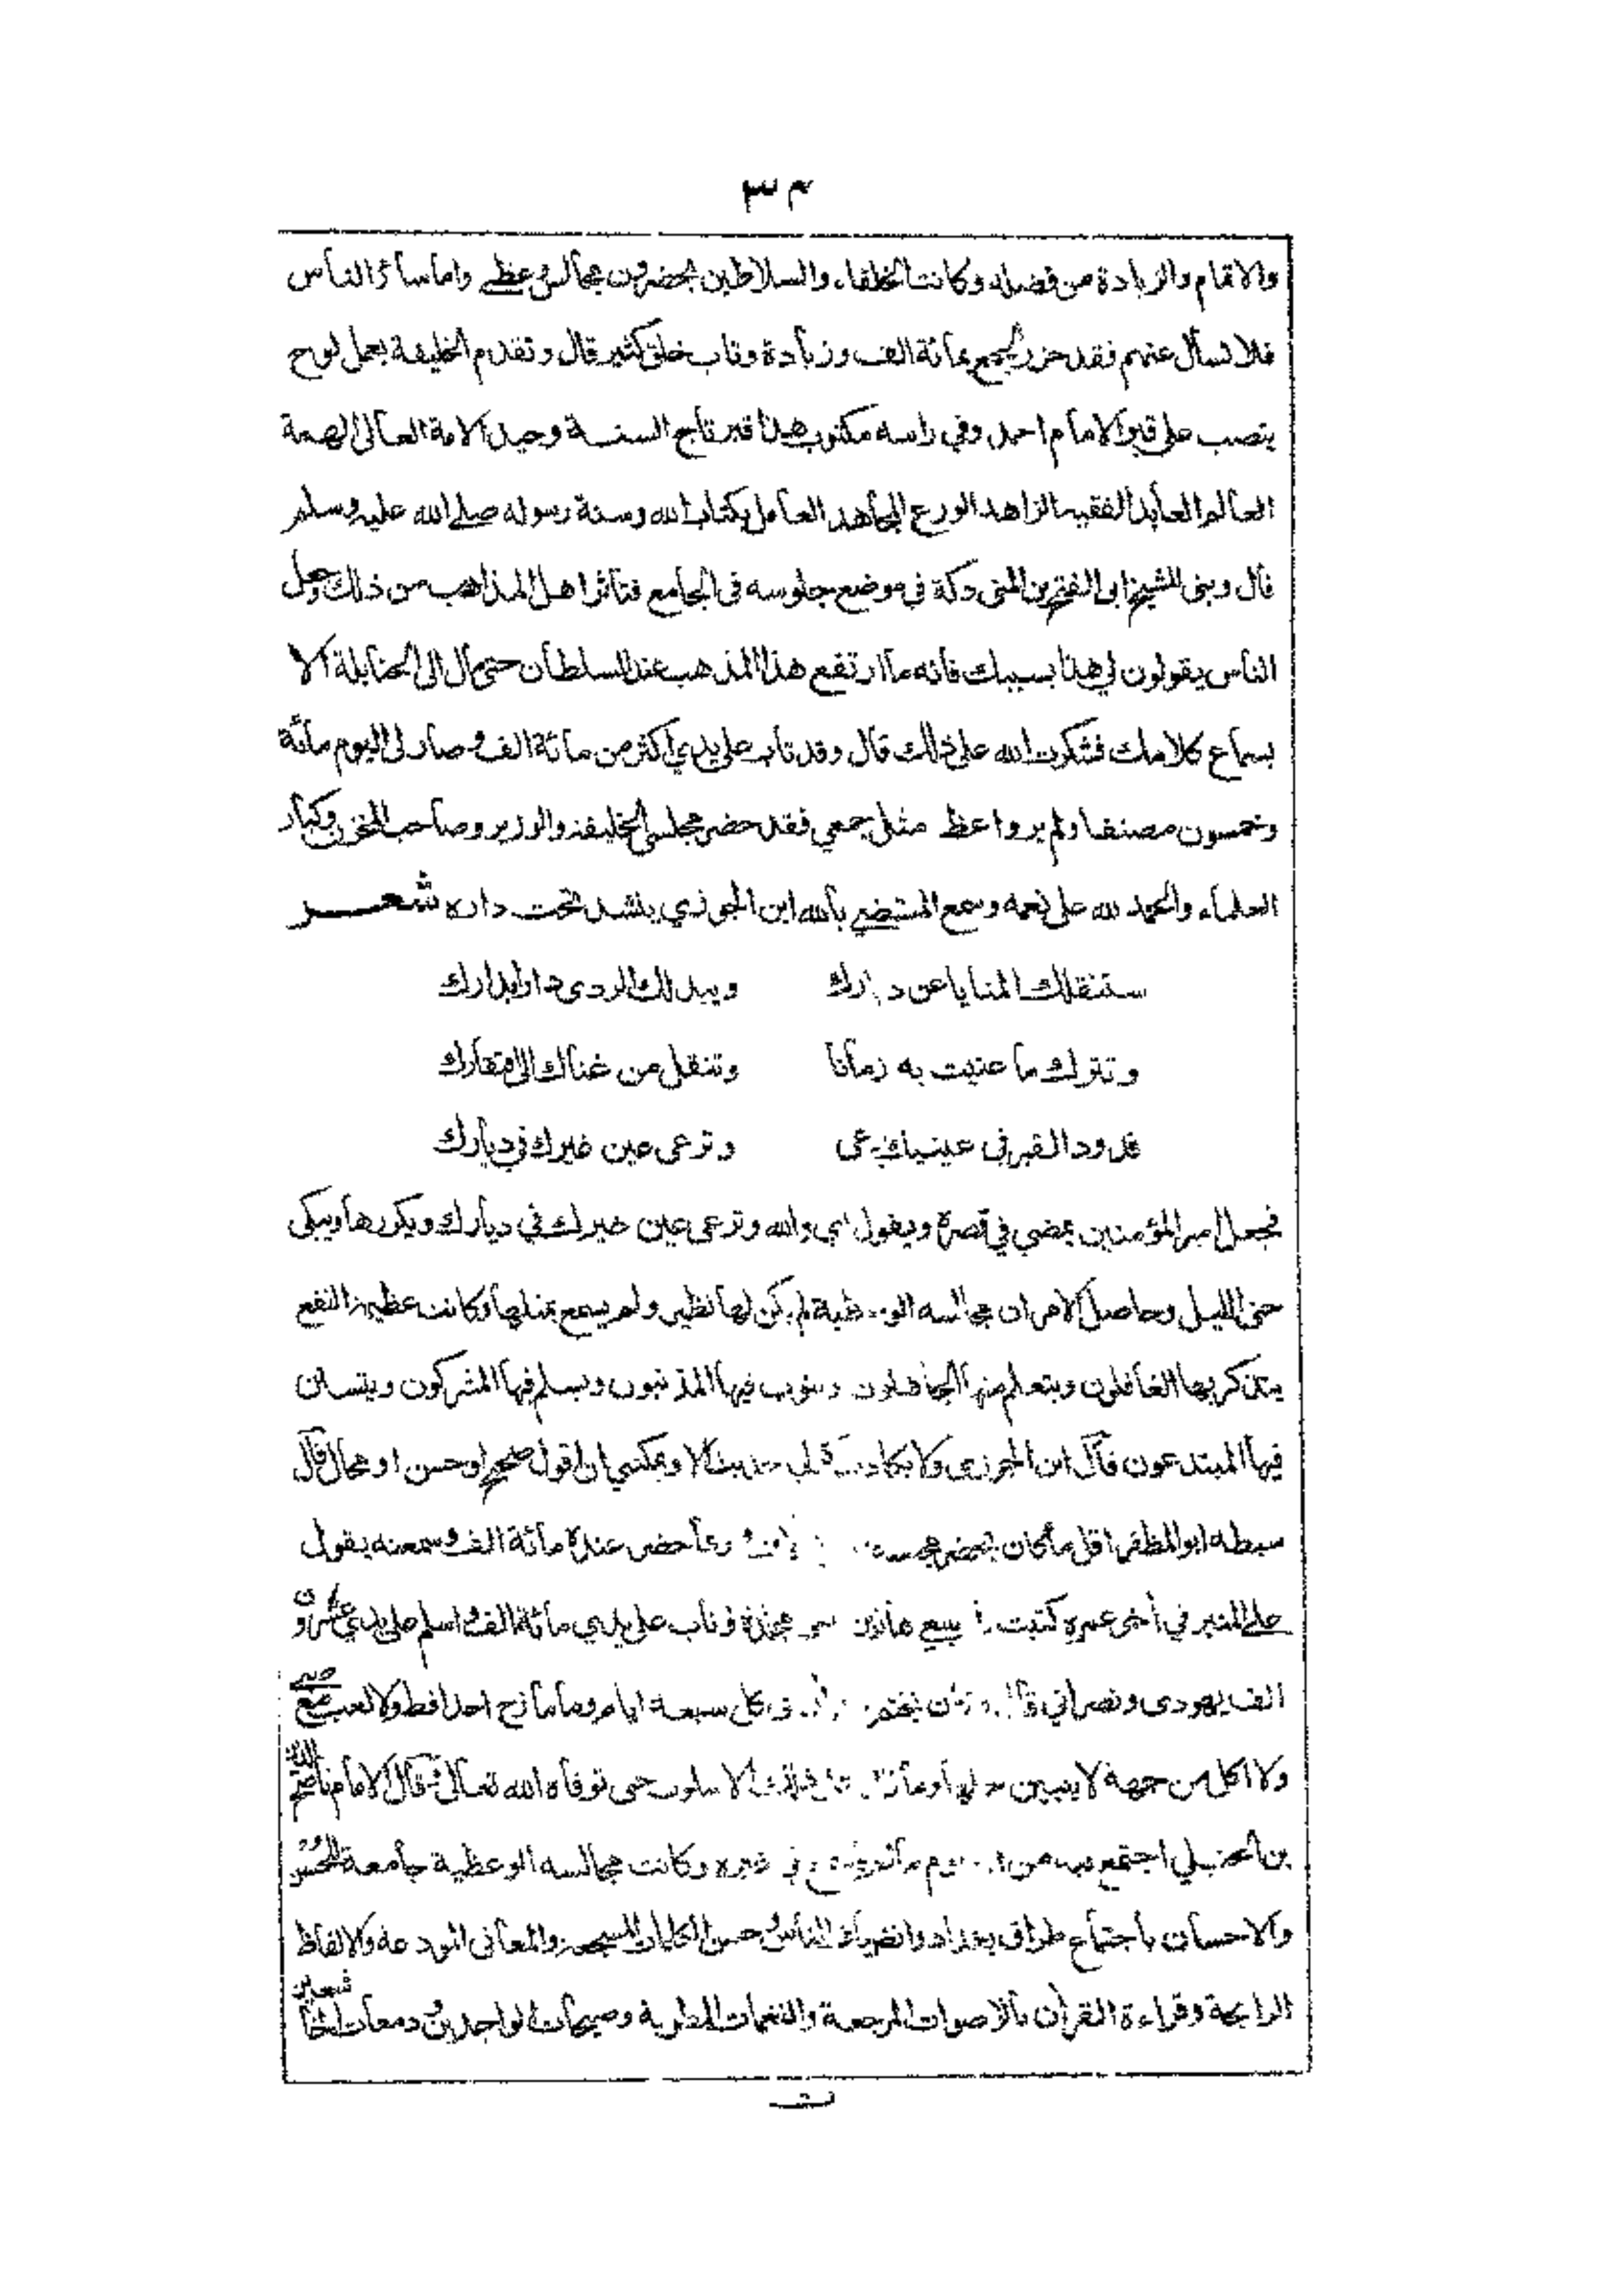 ٣٠
والاتمام والزيادة من فضله وكانت الخلفاء والسلاطين يحضرون مجالس وعظي واما سائر الناس
فلا تسأل عنهم فقد حزر الجمع بمائة الف وزيادة وتاب خلق كثير قال وتقدم الخليفة بعمل لوح
ينصب على قبر الامام احمد وفي راسه مكتوب هذا قبر تاج السنة وحيد الامة العالى الهمة
العالم العابد الفقيه الزاهد الورع المجاهد العامل بكتاب الله وسنة رسوله صلى الله عليه وسلم
قال وبنى للشيخ ابى الفتح بن المنى دكة في موضع جلوسه فى الجامع فتاثر اهل المذاهب من ذلك وجعل
الناس يقولون لي هذا بسببك فانه ما ارتفع هذا المذهب عند السلطان حتى مال الى الحنابلة الا
بسماع كلامك فشكرت الله على ذلك قال وقد تاب على يدي اكثر من مائة الف وصار لى اليوم مائة
وخمسون مصنفا ولم ير واعظ مثل جمعي فقد حضر مجلسي الخليفة والوزير وصاحب المخزن وكبار
العلماء والحمد لله على نعمه وسمع المستضيء بالله ابن الجوزي ينشد تحت داره شعر
ستنقلك المنايا عن ديارك ويبدلك الردى دارا بدارك
وتترك ما عنيت به زمانا وتنقل من غناك الى افتقارك
فدود القبر في عينيك يرعى وترعى عين غيرك في ديارك
فجعل امير المؤمنين يمضي في قصره ويقول اي والله وترعى عين غيرك في ديارك ويكررها ويبكى
حتى الليل وحاصل الامر ان مجالسه الوعظية لم يكن لها نظير ولم يسمع بمثلها وكانت عظيمة النفع
يتذكر بها الغافلون ويتعلم منها الجاهلون ويتوب فيها المذنبون ويسلم فيها المشركون ويتسنن
فيها المبتدعون قال ابن الجوزى ولا يكاد لي حديث الا ويمكنني ان اقول صحيح او حسن او محال قال
سبطه ابو المظفر اقل ما كان يحضر مجلسه وربما حضر عنده مائة الف وسمعته يقول
على المنبر في أخر عمره كتبت هاتين مجلدة وتاب على يدي مائة الف واسلم على يدي عشرون
الف يهودى ونصراني يختم كل سبعة ايام وما مازح احدا قط ولا لعب مع صبي
ولا اكل من جهة لا يتيقن حلها وما زال على ذلك الاسلوب حتى توفاه الله تعالى قال الامام ناصح الدين
بن الحنبلي اجتمع فيه من في غيره وكانت مجالسه الوعظية جامعة للحسن
والاحسان باجتماع ظراف بغداد وانضياف الناس وحسن الكلمات المسجعة والمعانى المودعة والالفاظ
الرابحة وقراءة القرآن بالاصوات المرجعة والنغمات المطربة وصيحات الواجدين ودمعات الخاشعين